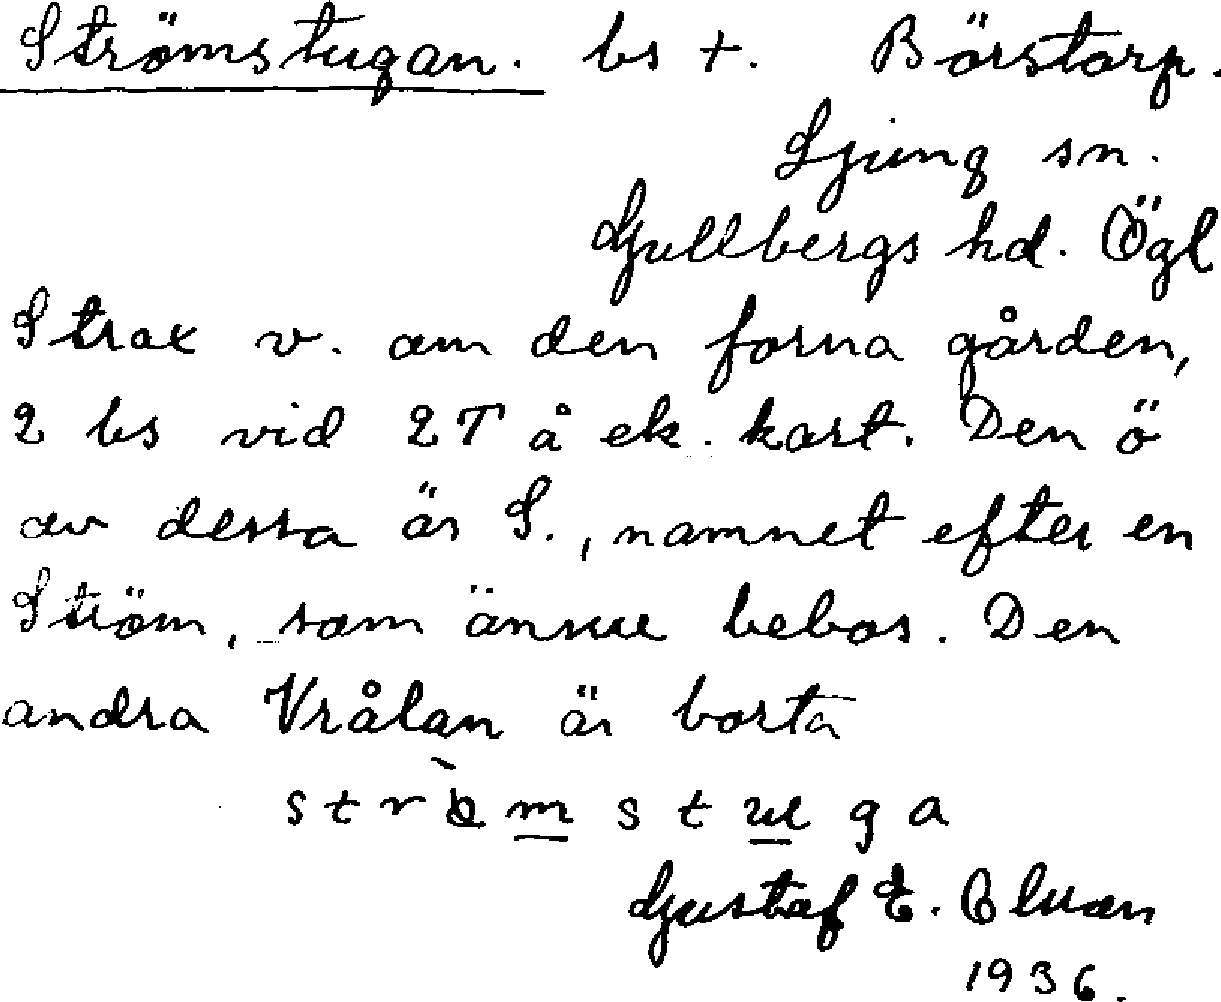 Strömstugan. bs +. Börstorp.
Ljung sn.
Gullbergs hd. Ögl
Strax v. om den forna gården,
2 bs vid 2T å ek. kart. Den ö
av dessa är S., namnet efter en
Ström, som ännu bebos. Den
andra Vrålan är borta
strömstuga
Gustaf E.
1936.